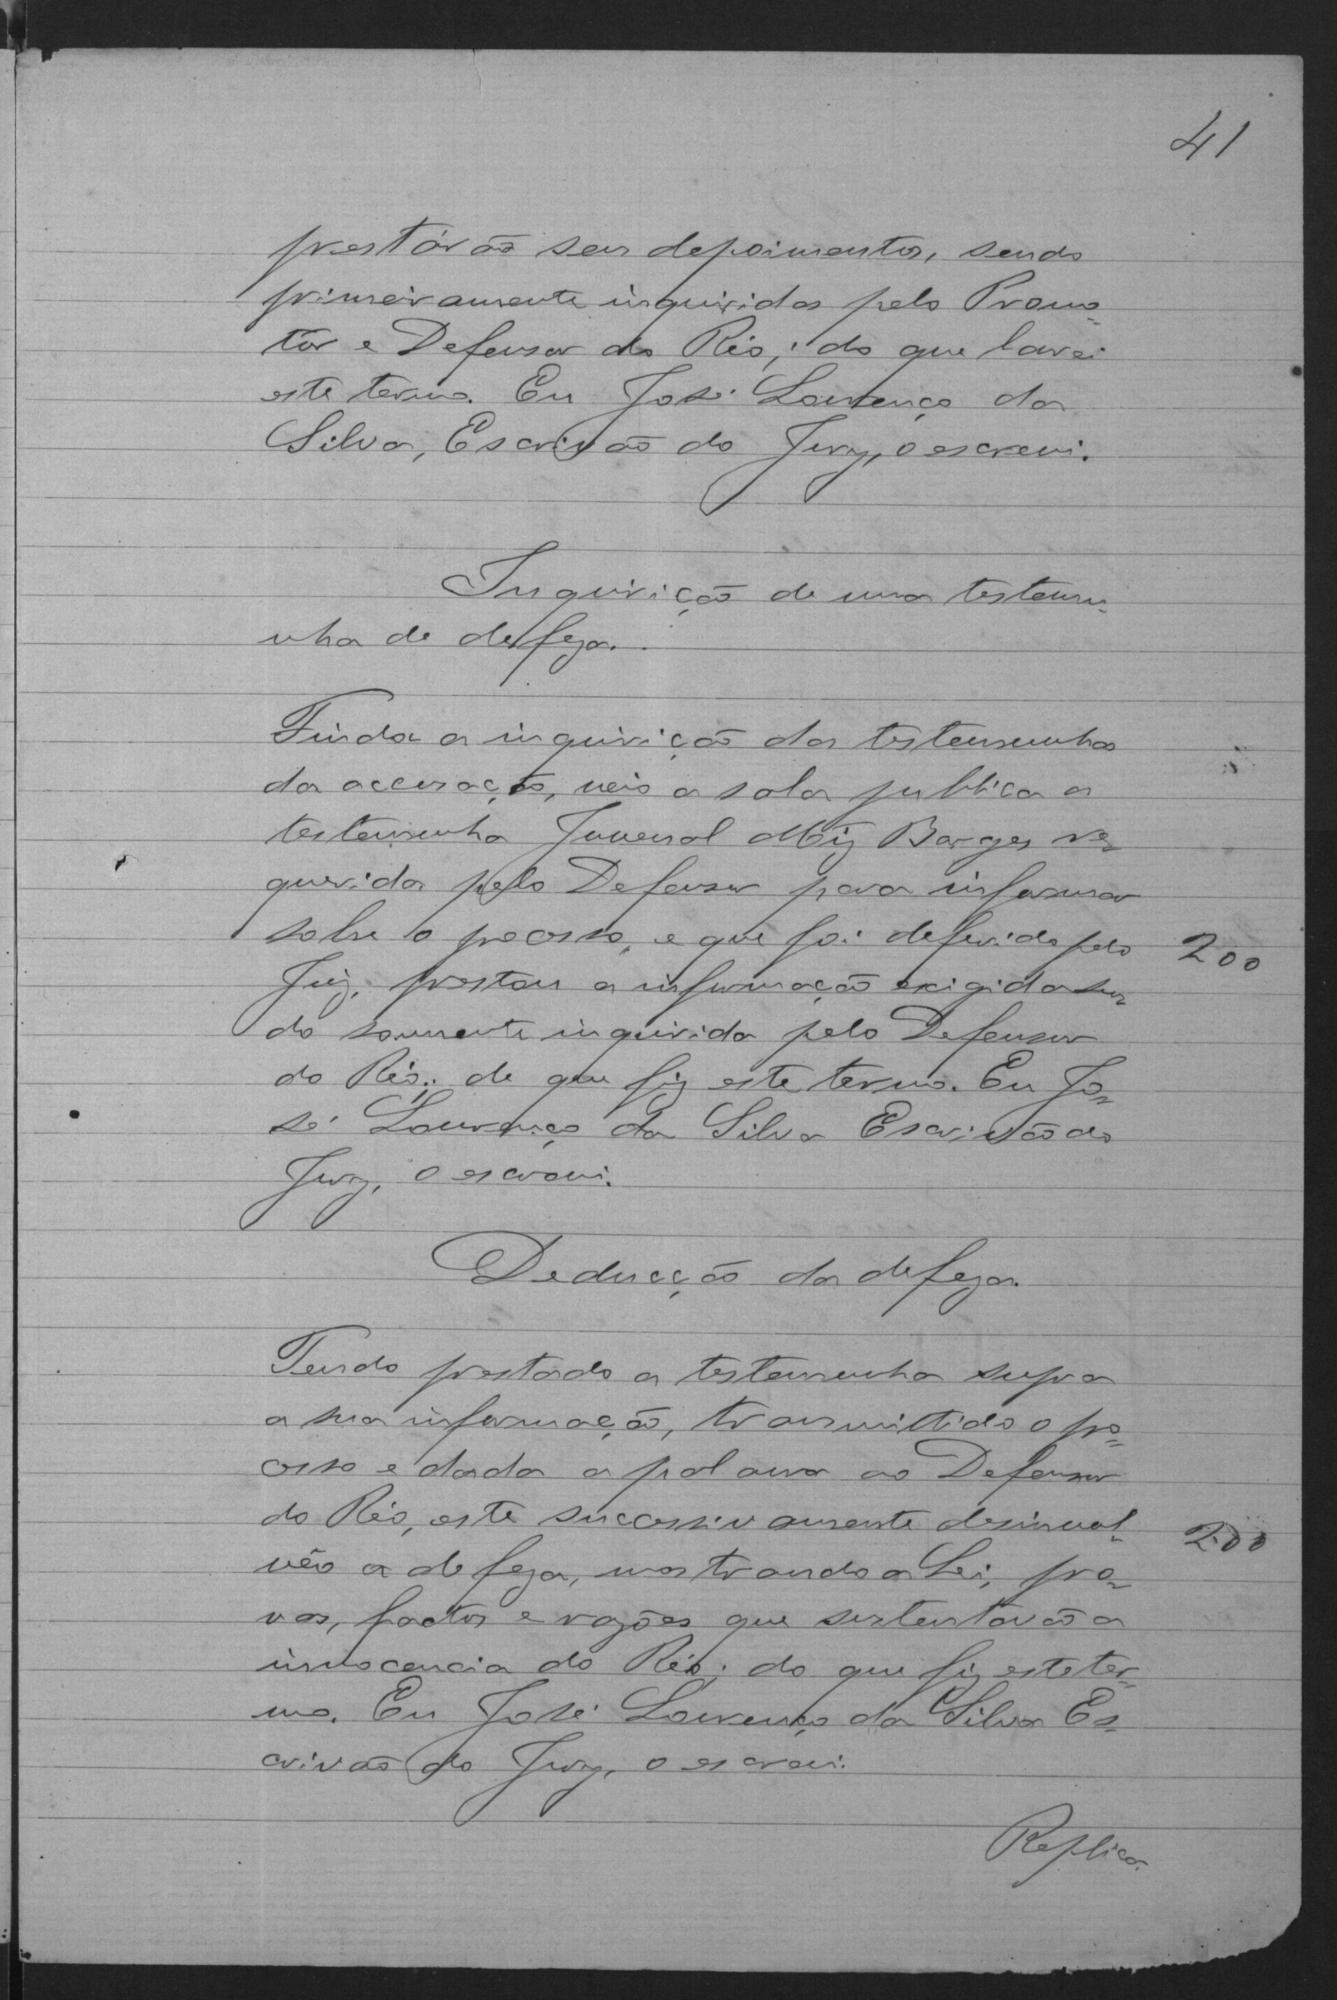 41
prestárão seus depoimentos, sendo
primeiramente inquiridas pelo Promo=
tôr e Defensor do Réo; do que lavrei
este termo. Eu José Lourenço da
Silva, Escrivão do Jury, o escrevi.
Inquirição de uma testemu=
nha de defeza.
Finda a inquirição das testemunhas
da accusação, veio a sala publica a
testemunha Juvenal Miz Borges re=
querida pelo Defensor para informar
sobre o processo, e que foi deferido pelo
200
Juiz, prestou a informação exigida sen=
do somente inquirida pelo Defensor
do Réo; de que fiz este termo. Eu Jo=
sé Lourenço da Silva Escrivão do
Jury, o escrevi.
Deducção da defeza.
Tendo prestado a testemunha supra
a sua informação, transmittido o pro=
cesso e dada a palavra ao Defensor
do Réo, este successivamente desinvol=
200
vêo a defeza, mostrando a Lei, pro=
vas, factos e razões que sustentavão a
innocencia do Réo; do que fiz este ter=
mo. Eu José Lourenço da Silva Es=
crivão do Jury, o escrevi.
Replica